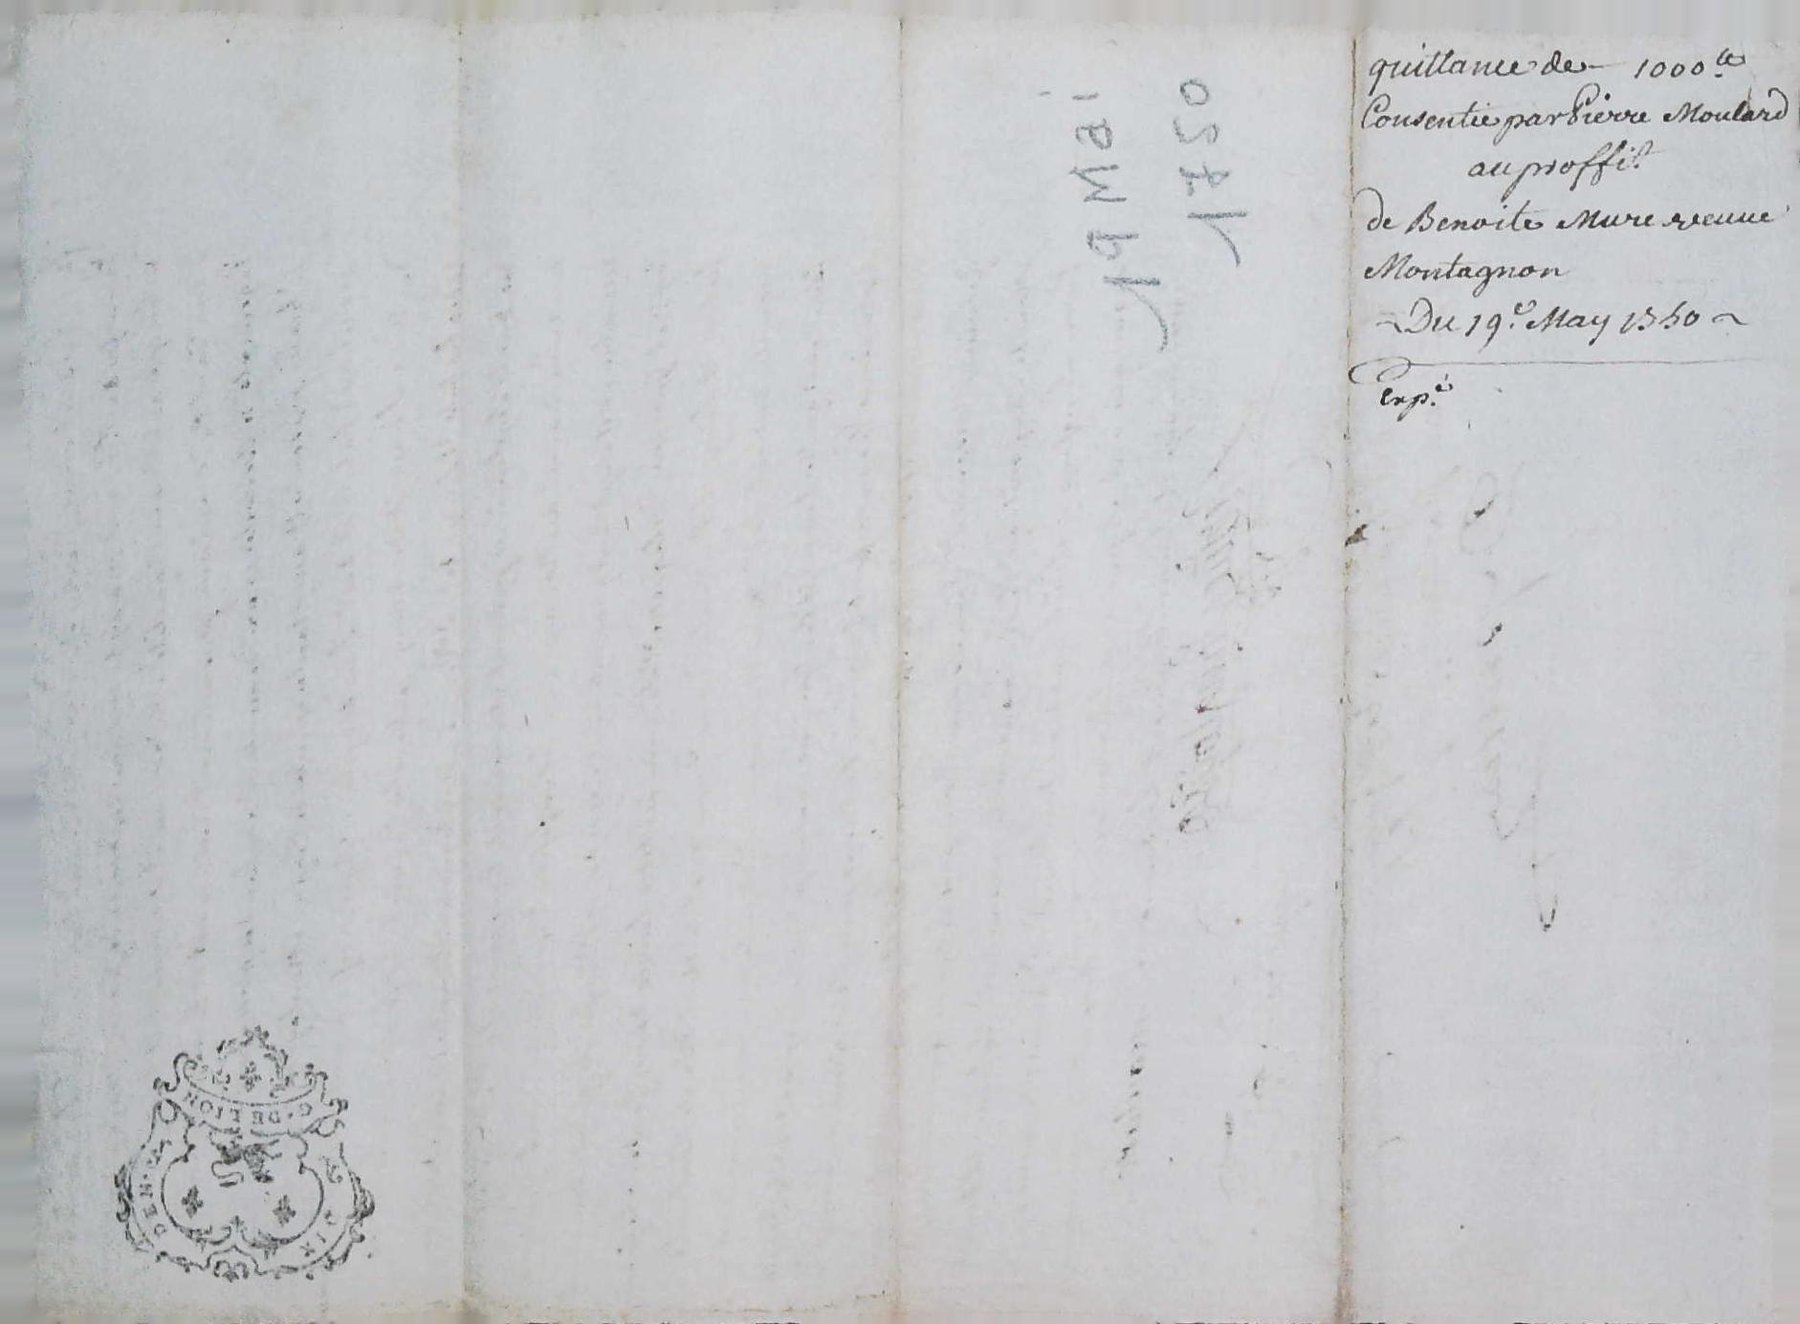 quittance de 1000ᵗᵗ
Consentie par Pierre Moulard
au proffit
de Benoite Mure veuve
Montagnon
Du 19.e May 1750
Exp.é
19 Mai
1750
G. DE LION
SIX DEN.